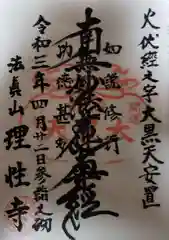 火伏経王寺大黒天安置
如説修行
南無妙法蓮華経
功徳甚多
令和三年四月廿二日参詣之砌
法貴山 理性寺